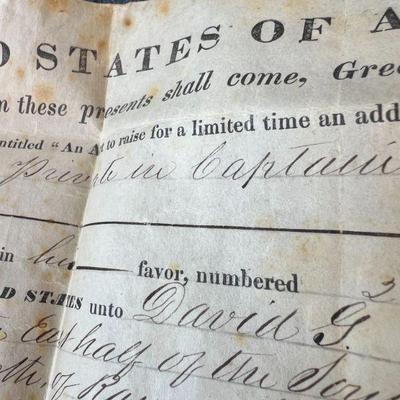 D STATES OF A
m these presents shall come, Gree
entitled "An Act to raise for a limited time an add
Private in Captain
in his favor, numbered 2
D STATES unto David G.
East half of the Sou
of Ra